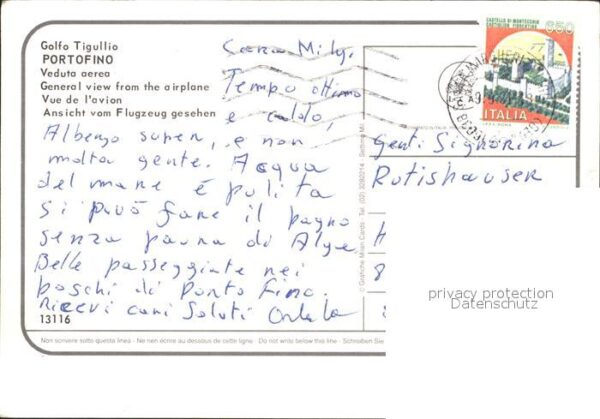 Golfo Tigullio
PORTOFINO
Veduta aerea
General view from the airplane
Vue de l'avion
Ansicht vom Flugzeug gesehen
Cara Mily,
Tempo ottimo
e caldo,
Albergo super, e non
molta gente. Acqua
del mare è pulita
si può fare il bagno
senza paura di Alge
Belle passeggiate nei
boschi di Porto Fino.
Ricevi cari Saluti
13116
Non scrivere sotto questa linea - Ne rien écrire au dessous de cette ligne - Do not write below this line - Schreiben Sie
© Grafiche Milan Cards - Tel. (02) 3086214 - Settimo Mil.
CASTELLO DI MONTECCHIO
CASTIGLION FIORENTINO
650
ITALIA
Gent. Signorina
Rutishauser
H
8
privacy protection
Datenschutz